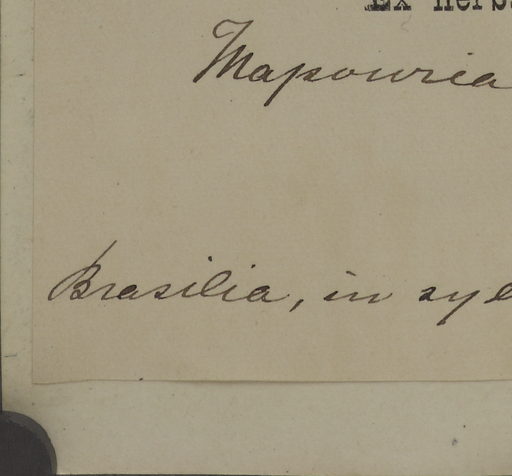 Ex herb
Mapouria
Brasilia, in syl